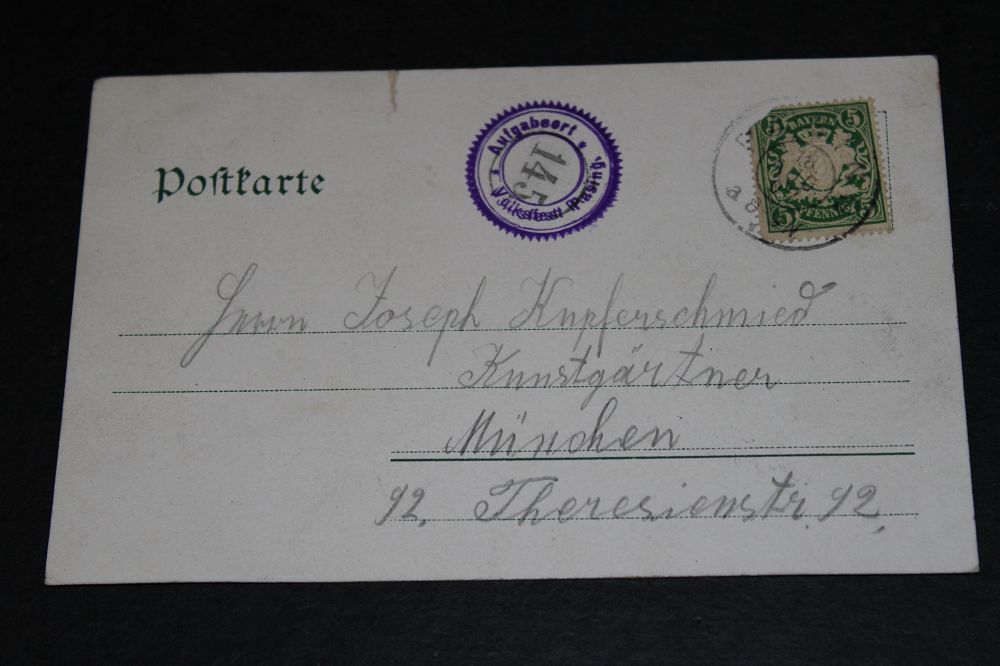 Postkarte
Aufgabeort
145
Volksfest Pasing
5 5
BAYERN
5 PFENNIG
Herrn Joseph Kupferschmied
Kunstgärtner
München
92, Theresienstr. 92,